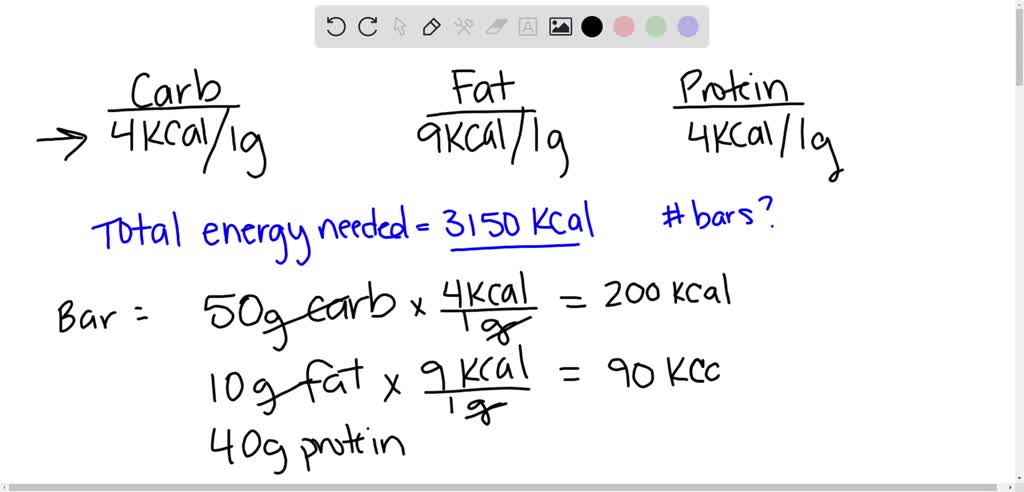 Carb Fat Protein
4 Kcal/1g 9Kcal/1g 4Kcal/1g
Total energy needed = 3150 Kcal # bars?
Bar = 50g carb x 4Kcal/1g = 200 Kcal
10g fat x 9 Kcal/1g = 90 Kcc
40g protein